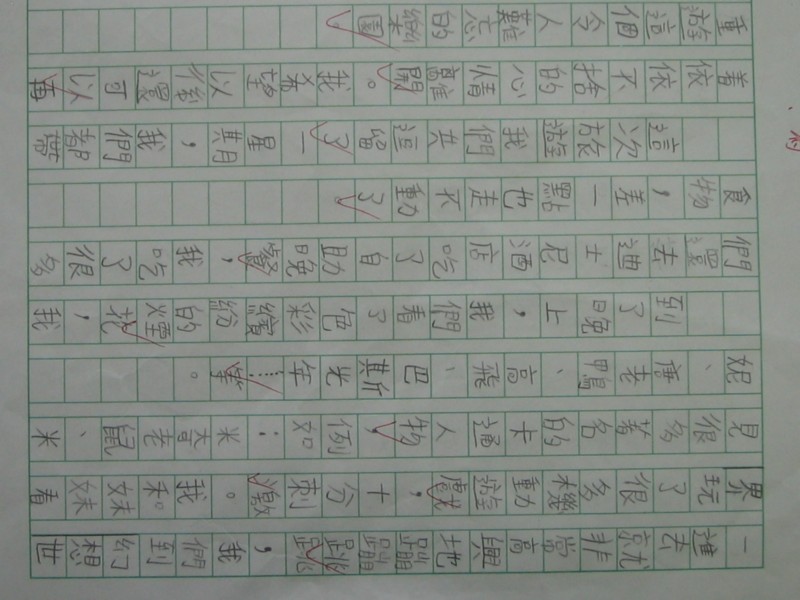 一進去就非常高興地蹦蹦跳跳，我們到幻想世
界玩了很多機動遊戲，十分刺激。我和妹妹看
見很多著名的卡通人物，例如：米奇老鼠、米
妮、唐老鴨、高飛、巴斯光年……等。
到了晚上，我們看了色彩繽紛的煙花，我
們還去迪士尼酒店吃了自助晚餐，我吃了很多
食物，差一點也走不動了。
這次旅遊我們共逗留了一星期，我們都帶
着依依不捨的心情離開。我希望以後還可以再
重遊這個令人難忘的樂園。